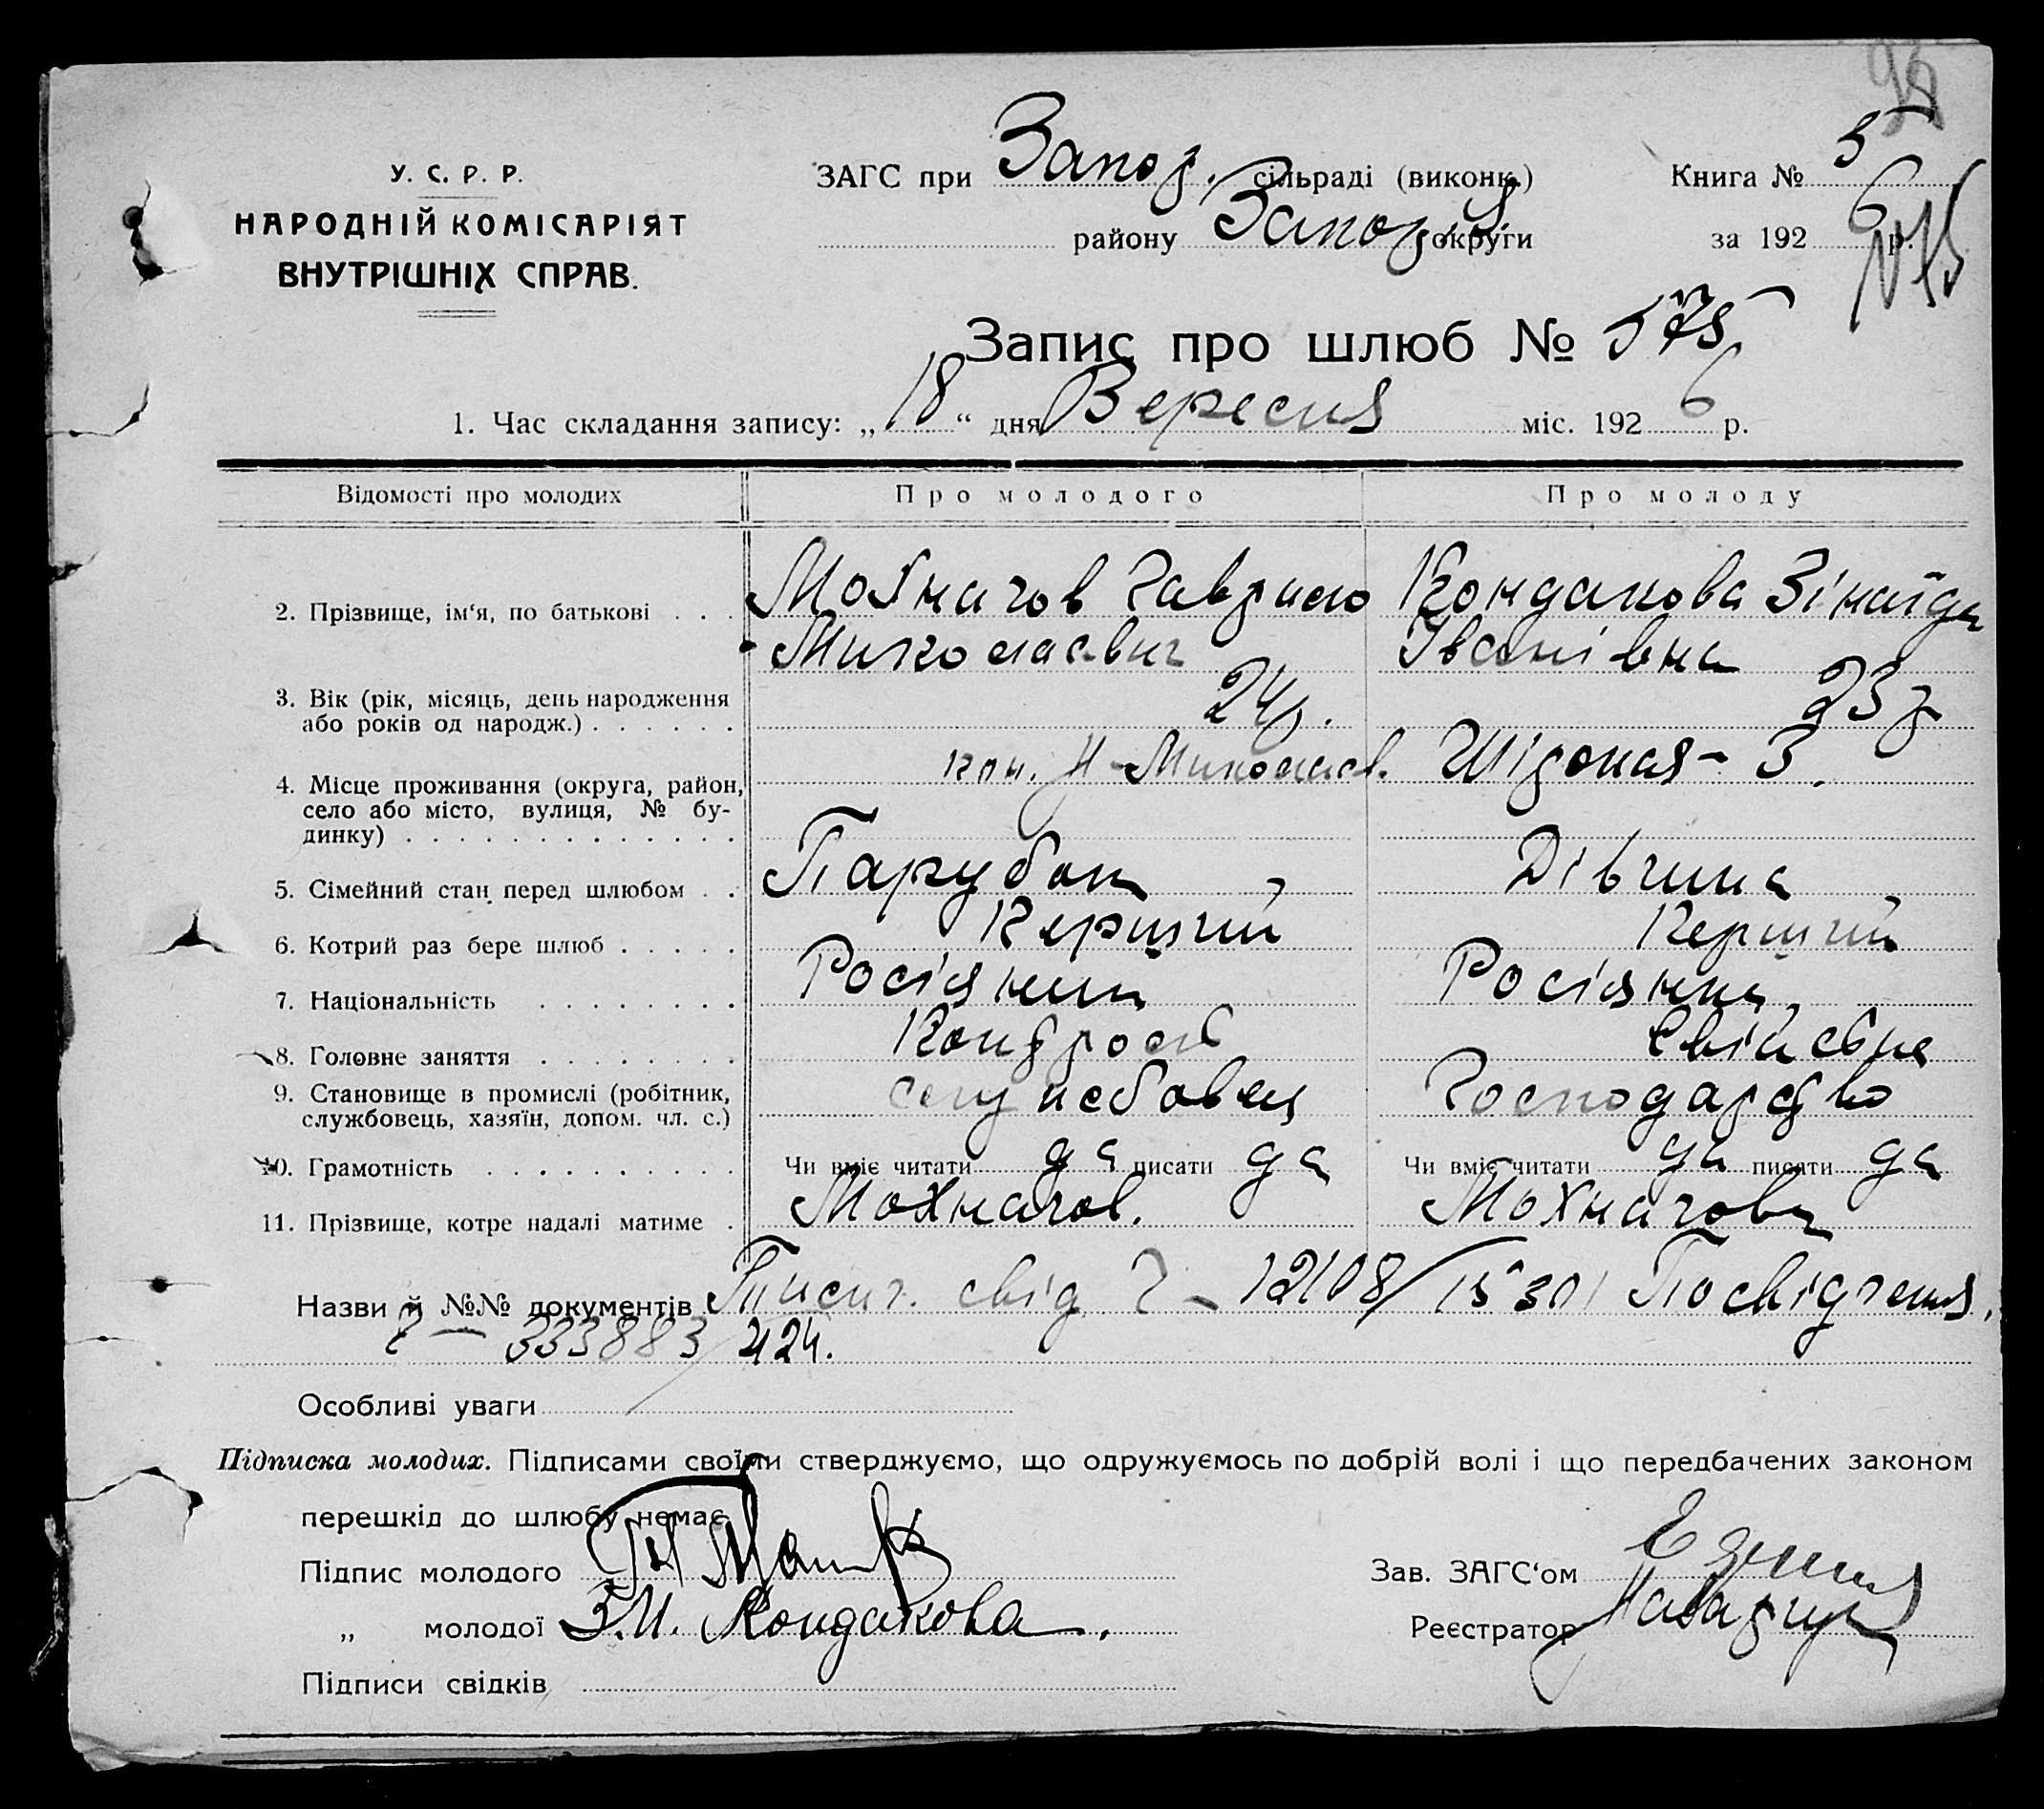 У. С. Р. Р.
НАРОДНІЙ КОМІСАРІЯТ
ВНУТРІШНІХ СПРАВ.
ЗАГС при Запор. сільраді (виконк.)
району Запор. округи
Книга № 5
за 192 6 р.
Запис про шлюб № 575
1. Час складання запису: „ 18 “ дня Вересня міс. 192 6 р.
Відомості про молодих Про молодого Про молоду
2. Прізвище, ім‘я, по батькові . . . Мохначов Гаврило Кондакова Зінаїда
Миколаєвич Іванівна
3. Вік (рік, місяць, день народження
або років од народж.) . . . . . . 24 р. 23 р
4. Місце проживання (округа, район,
село або місто, вулиця, № бу-
динку) . . . . . . . . . . . . . .
кол. Н-Миколаєв. Широкая - 3.
5. Сімейний стан перед шлюбом . . Парубок Дівчина
6. Котрий раз бере шлюб . . . . . Перший Перший
7. Національність . . . . . . . Росіянин Росіянка
8. Головне заняття . . . . . . . Свійське
9. Становище в промислі (робітник,
службовець, хазяїн, допом. чл. с.)
службовец Господарство
10. Грамотність . . . . . . . . . Чи вміє читати да писати да Чи вміє читати да писати да
11. Прізвище, котре надалі матиме . Мохначов. Мохначова
Назви й №№ документів свід 12108/1530 Посвідчення,
333883/424.
Особливі уваги
Підписка молодих. Підписами своїми стверджуємо, що одружуємось по добрій волі і що передбачених законом
перешкід до шлюбу немає
Підпис молодого
„ молодої З.И. Кондакова.
Зав. ЗАГС‘ом
Реєстратор
Підписи свідків